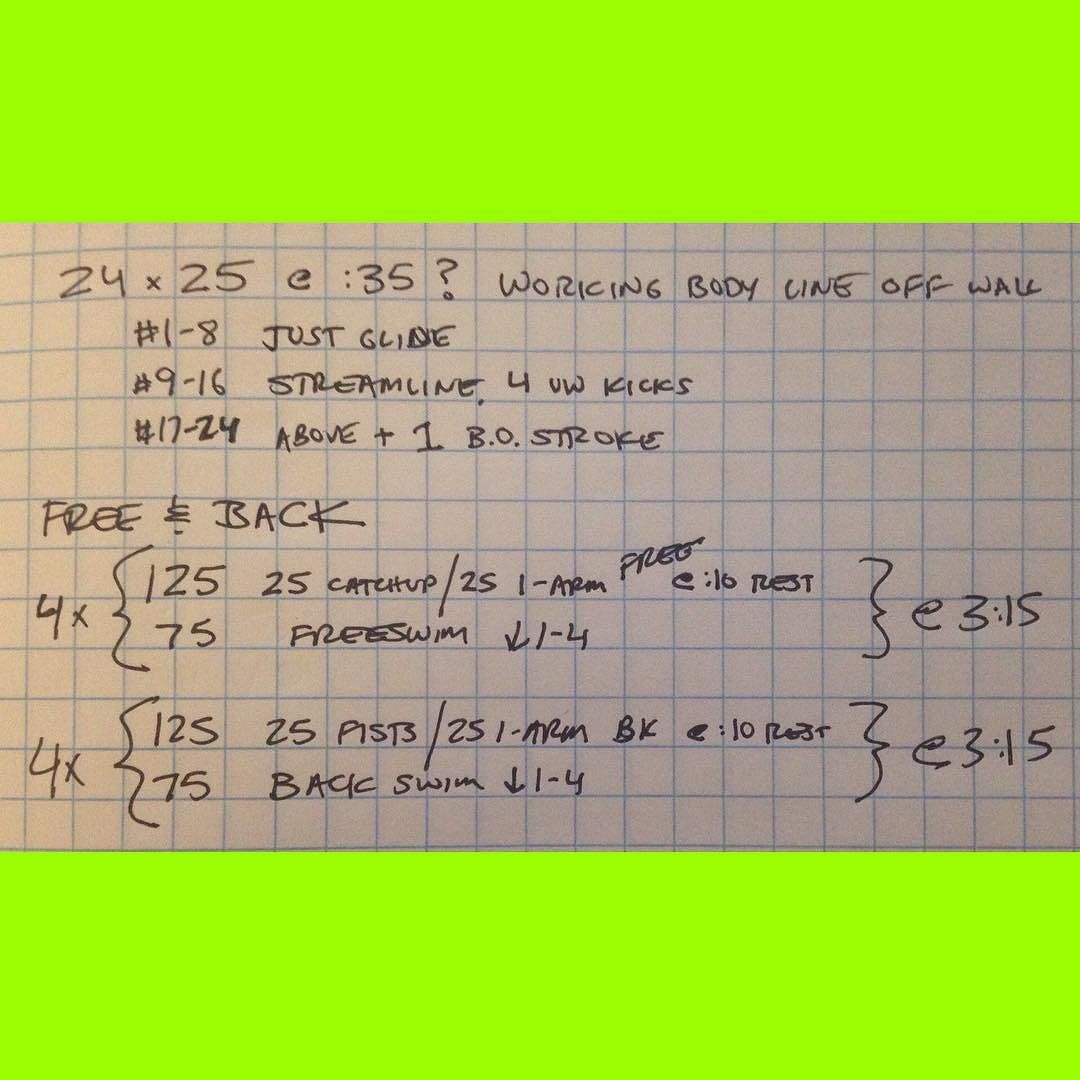 24 x 25 @ :35? WORKING BODY LINE OFF WALL
#1-8 JUST GLIDE
#9-16 STREAMLINE, 4 UW KICKS
#17-24 ABOVE + 1 B.O. STROKE
FREE & BACK
4x { 125 25 CATCHUP/25 1-ARM FREE @ :10 REST } @ 3:15
75 FREESWIM ↓1-4
4x { 125 25 FISTS/25 1-ARM BK @ :10 REST } @ 3:15
75 BACK SWIM ↓1-4